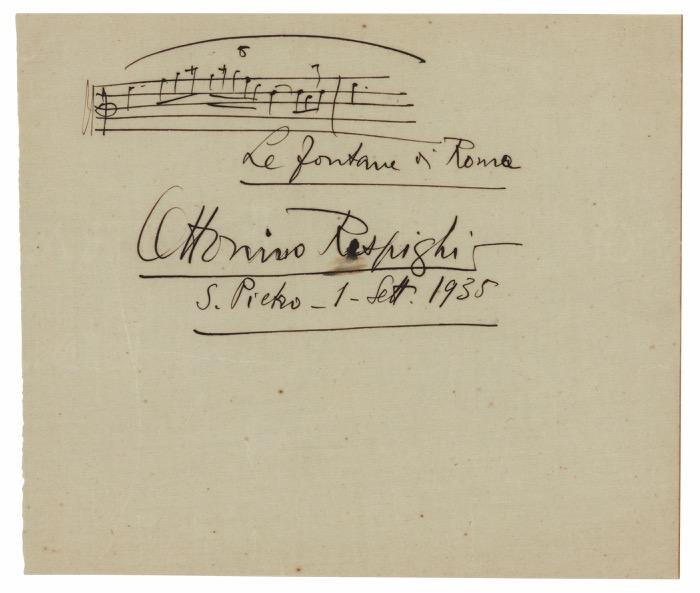 8 7
Le fontane di Roma
Ottorino Respighi
S. Pietro - 1 - Sett. 1935